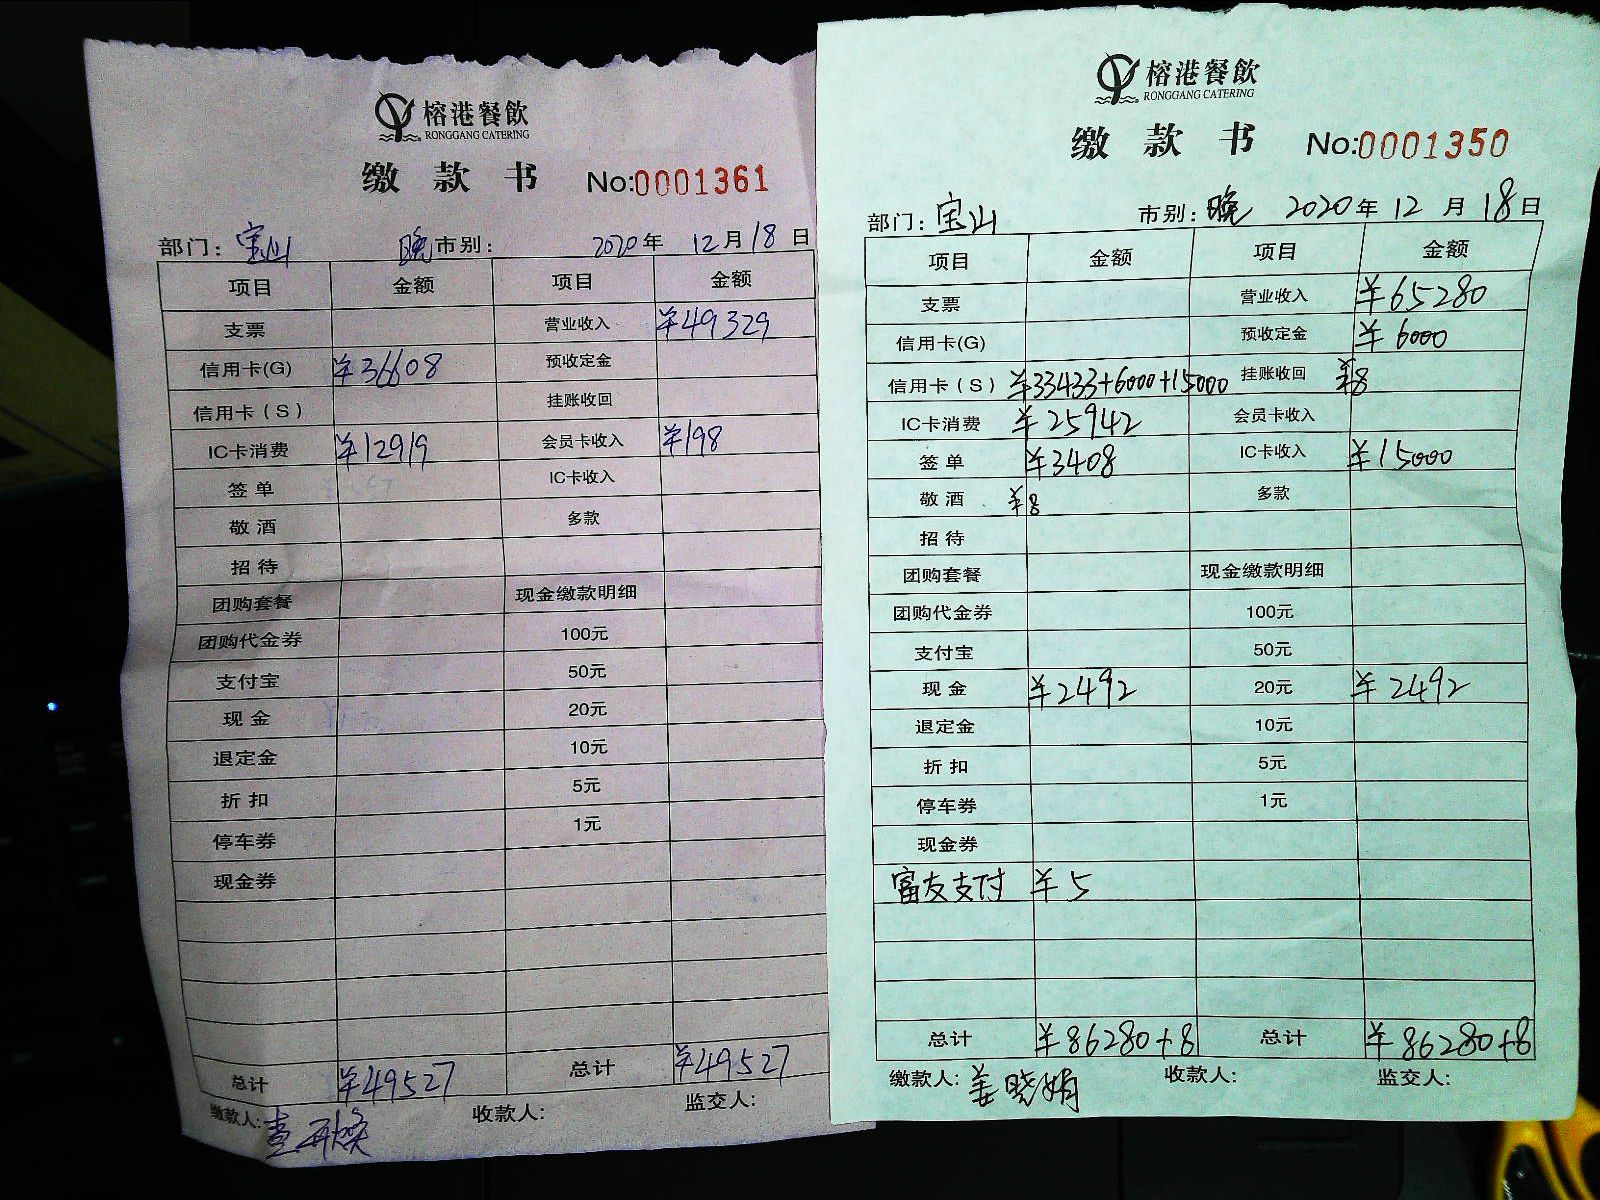 榕港餐飲
RONGGANG CATERING
缴款书 No:0001361
部门: 宝山 晚市别: 2020年 12月18日
项目 金额 项目 金额
支票 营业收入 ¥49329
信用卡(G) ¥36608 预收定金
信用卡（S） 挂账收回
IC卡消费 ¥12919 会员卡收入 ¥198
签单 IC卡收入
敬酒 多款
招待
团购套餐 现金缴款明细
团购代金券 100元
支付宝 50元
现金 20元
退定金 10元
折扣 5元
停车券 1元
现金券
总计 ¥49527 总计 ¥49527
缴款人: 收款人: 监交人:
榕港餐飲
RONGGANG CATERING
缴款书 No:0001350
部门: 宝山 市别: 晚 2020年 12月 18日
项目 金额 项目 金额
支票 营业收入 ¥65280
信用卡(G) 预收定金 ¥6000
信用卡（S） ¥33433+6000+15000 挂账收回 ¥8
IC卡消费 ¥25942 会员卡收入
签单 ¥3408 IC卡收入 ¥15000
敬酒 ¥8 多款
招待
团购套餐 现金缴款明细
团购代金券 100元
支付宝 50元
现金 ¥2492 20元 ¥2492
退定金 10元
折扣 5元
停车券 1元
现金券
富友支付 ¥5
总计 ¥86280+8 总计 ¥86280+8
缴款人: 姜晓娟 收款人: 监交人: